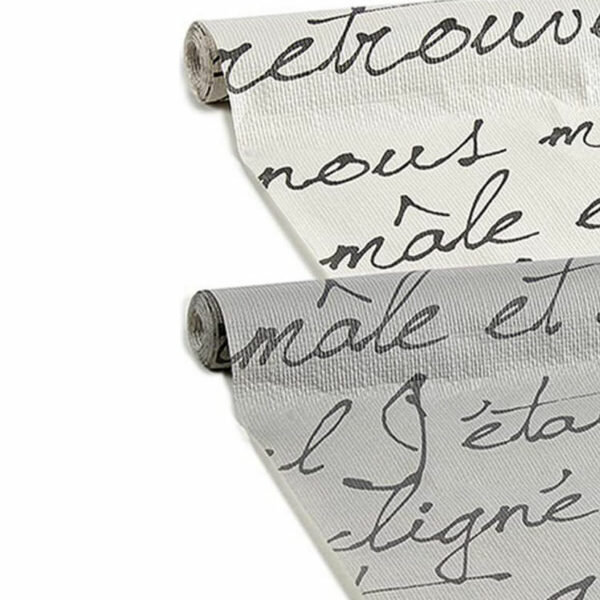 retrouv
nous m
mâle e
mâle et
l J'éta
ligné